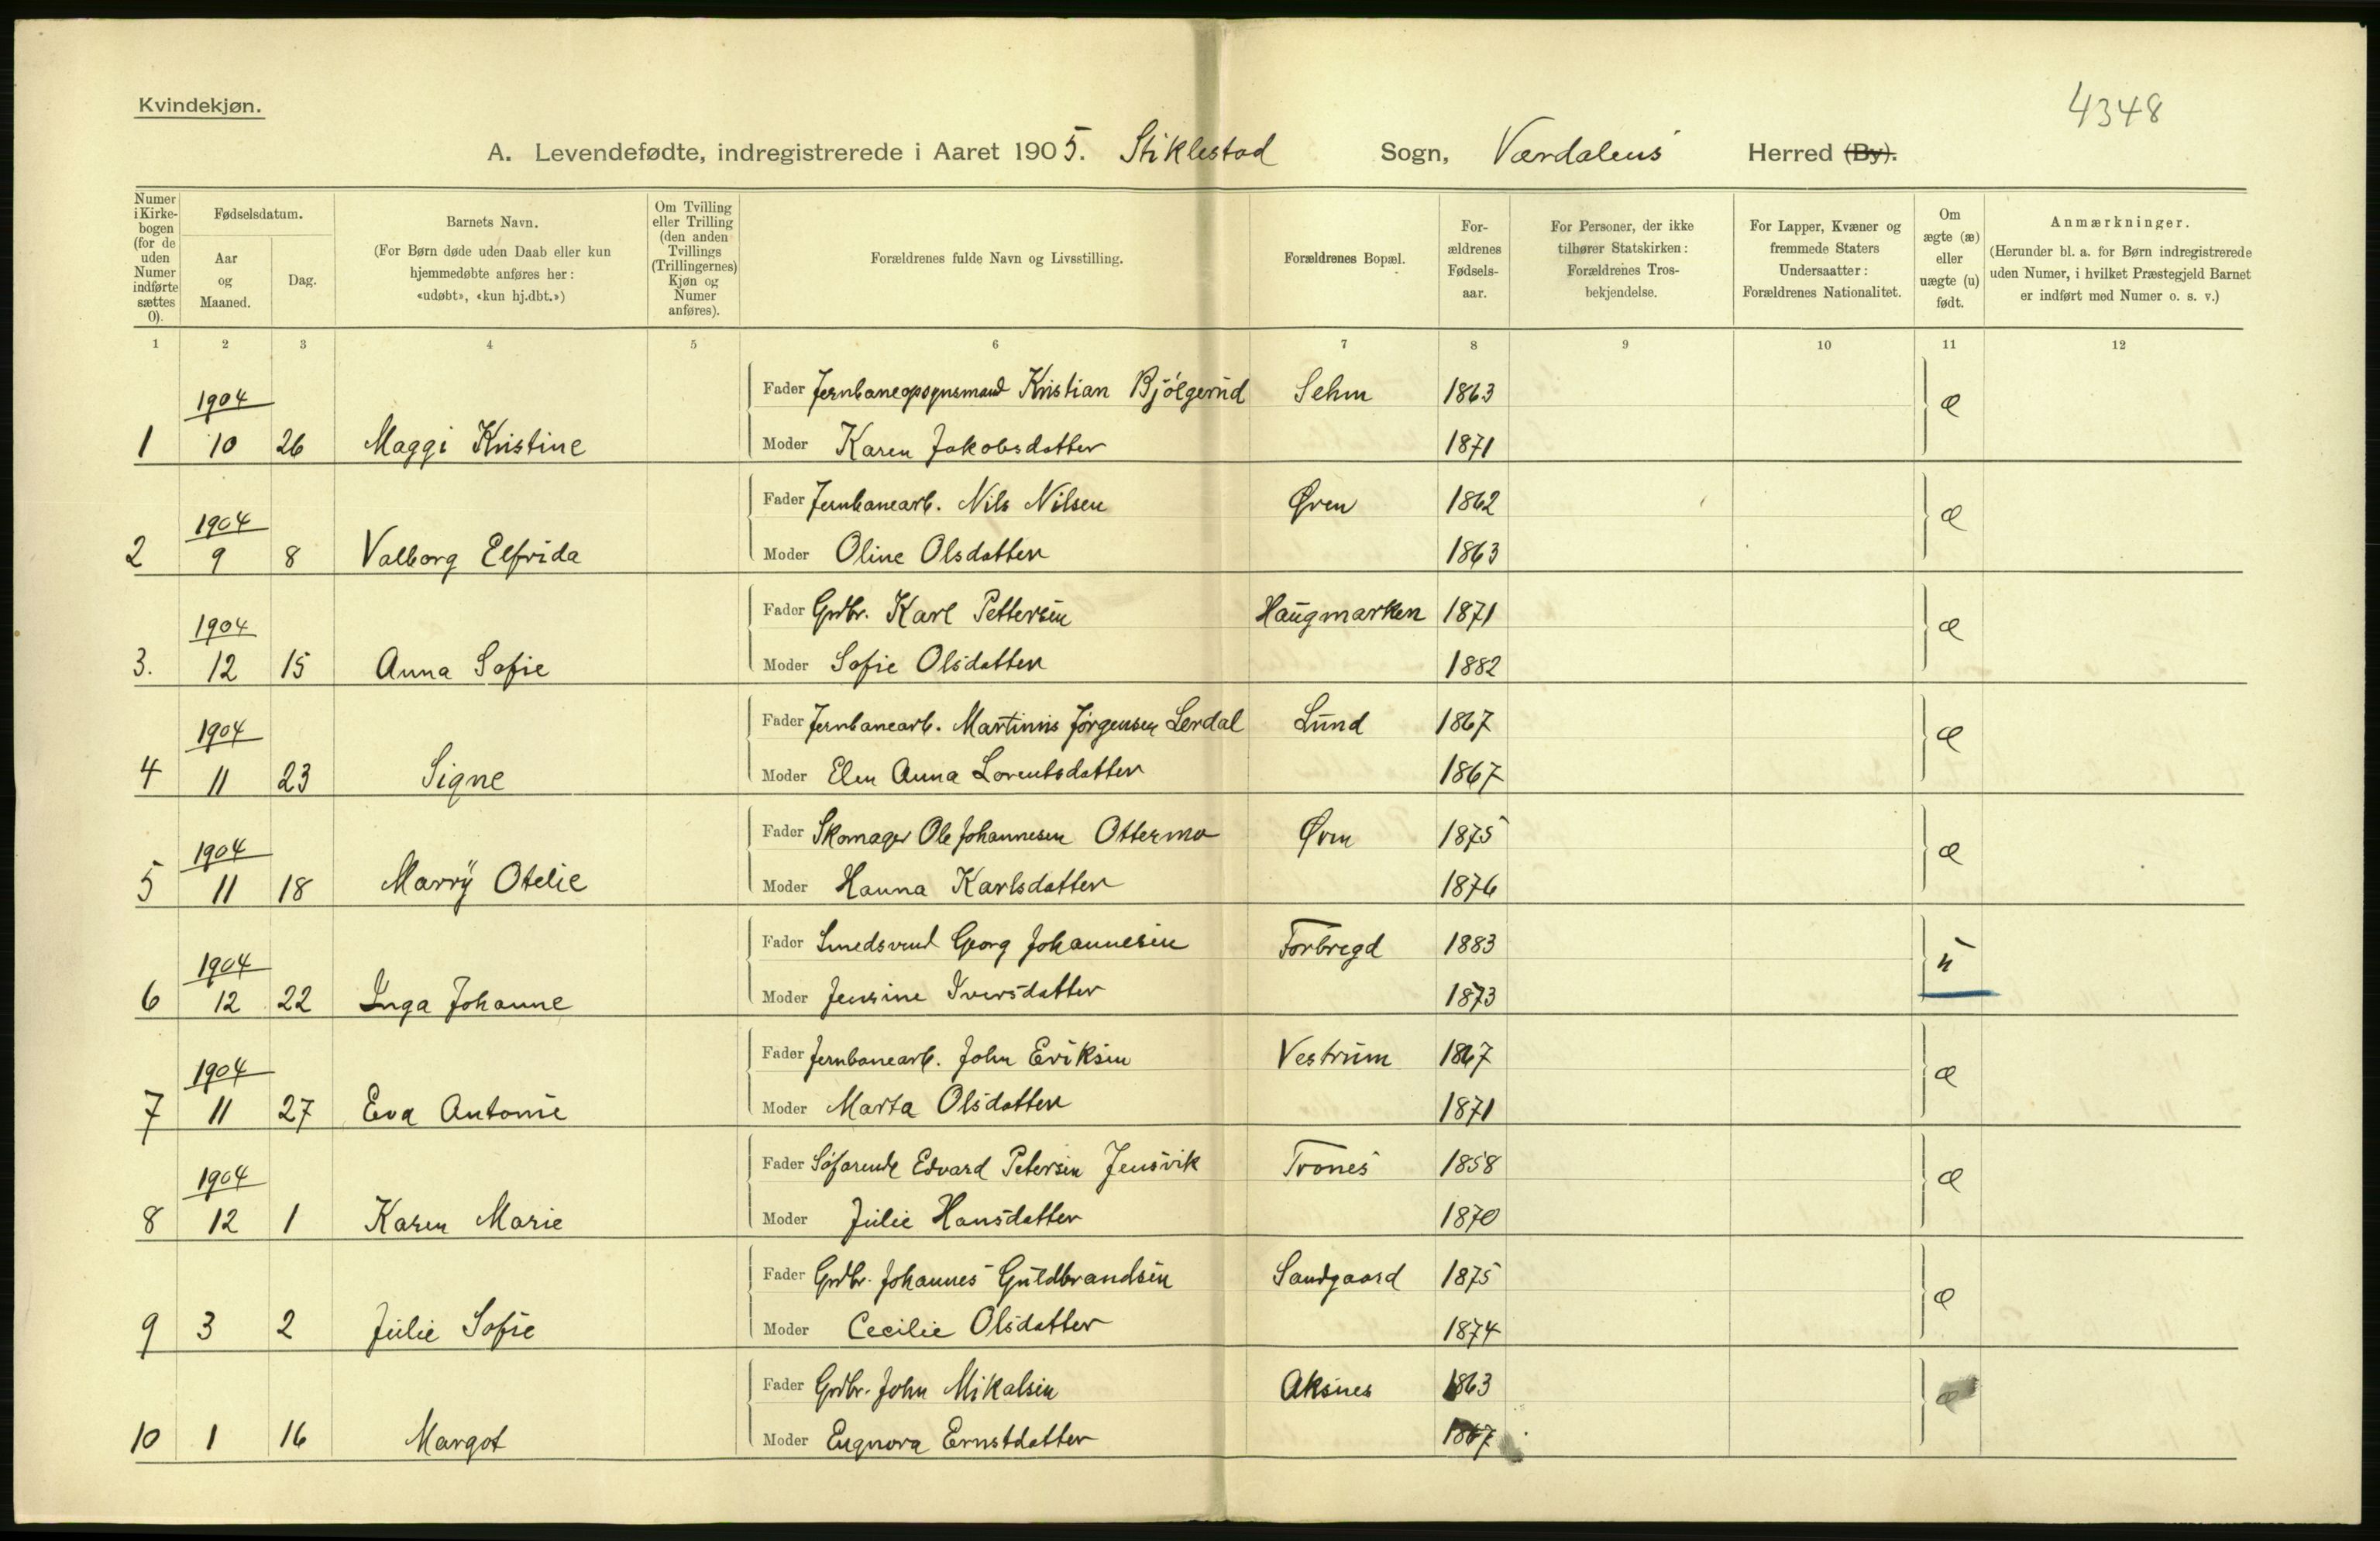 Kvindekjøn.
4348
A. Levendefødte, indregistrerede i Aaret 1905. Stiklestad Sogn, Værdalens Herred (By).
Numer i Kirkebogen (for de uden Numer indførte sættes 0).
Fødselsdatum.
Aar og Maaned.
Dag.
Barnets Navn.
(For Børn døde uden Daab eller kun hjemmedøbte anføres her: «udøbt», «kun hj.dbt.»)
Om Tvilling eller Trilling (den anden Tvillings (Trillingernes) Kjøn og Numer anføres).
Forældrenes fulde Navn og Livsstilling.
Forældrenes Bopæl.
Forældrenes Fødselsaar.
For Personer, der ikke tilhører Statskirken: Forældrenes Trosbekjendelse.
For Lapper, Kvæner og fremmede Staters Undersaatter: Forældrenes Nationalitet.
Om ægte (æ) eller uægte (u) født.
Anmærkninger.
(Herunder bl. a. for Børn indregistrerede uden Numer, i hvilket Præstegjeld Barnet er indført med Numer o. s. v.)
1 2 3 4 5 6 7 8 9 10 11 12
1904 Fader Jernbaneopsynsmand Kristian Bjølgerud Sehm 1863 æ
1 10 26 Maggi Kristine Moder Karen Jakobsdatter 1871
1904 Fader Jernbanearb. Nils Nilsen Øren 1862 æ
2 9 8 Valborg Elfrida Moder Oline Olsdatter 1863
1904 Fader Grdbr. Karl Pettersen Haugmarken 1871 æ
3. 12 15 Anna Sofie Moder Sofie Olsdatter 1882
1904 Fader Jernbanearb. Martinus Jørgensen Lerdal Lund 1867 æ
4 11 23 Signe Moder Elen Anna Lorentsdatter 1867
1904 Fader Skomager Ole Johannesen Ottermo Øren 1875 æ
5 11 18 Marry Otelie Moder Hanna Karlsdatter 1876
1904 Fader Smedsvend Georg Johannesen Forbregd 1883 u
6 12 22 Inga Johanne Moder Jensine Iversdatter 1873
1904 Fader Jernbanearb. John Eriksen Vestrum 1867 æ
7 11 27 Eva Antonie Moder Marta Olsdatter 1871
1904 Fader Søfarende Edvard Petersen Jensvik Trones 1858 æ
8 12 1 Karen Marie Moder Julie Hansdatter 1870
Fader Grdbr. Johannes Guldbrandsen Sandgaard 1875 æ
9 3 2 Julie Sofie Moder Cecilie Olsdatter 1874
Fader Grdbr. John Mikalsen Aksnes 1863 æ
10 1 16 Margot Moder Eugnora Ernstdatter 1867